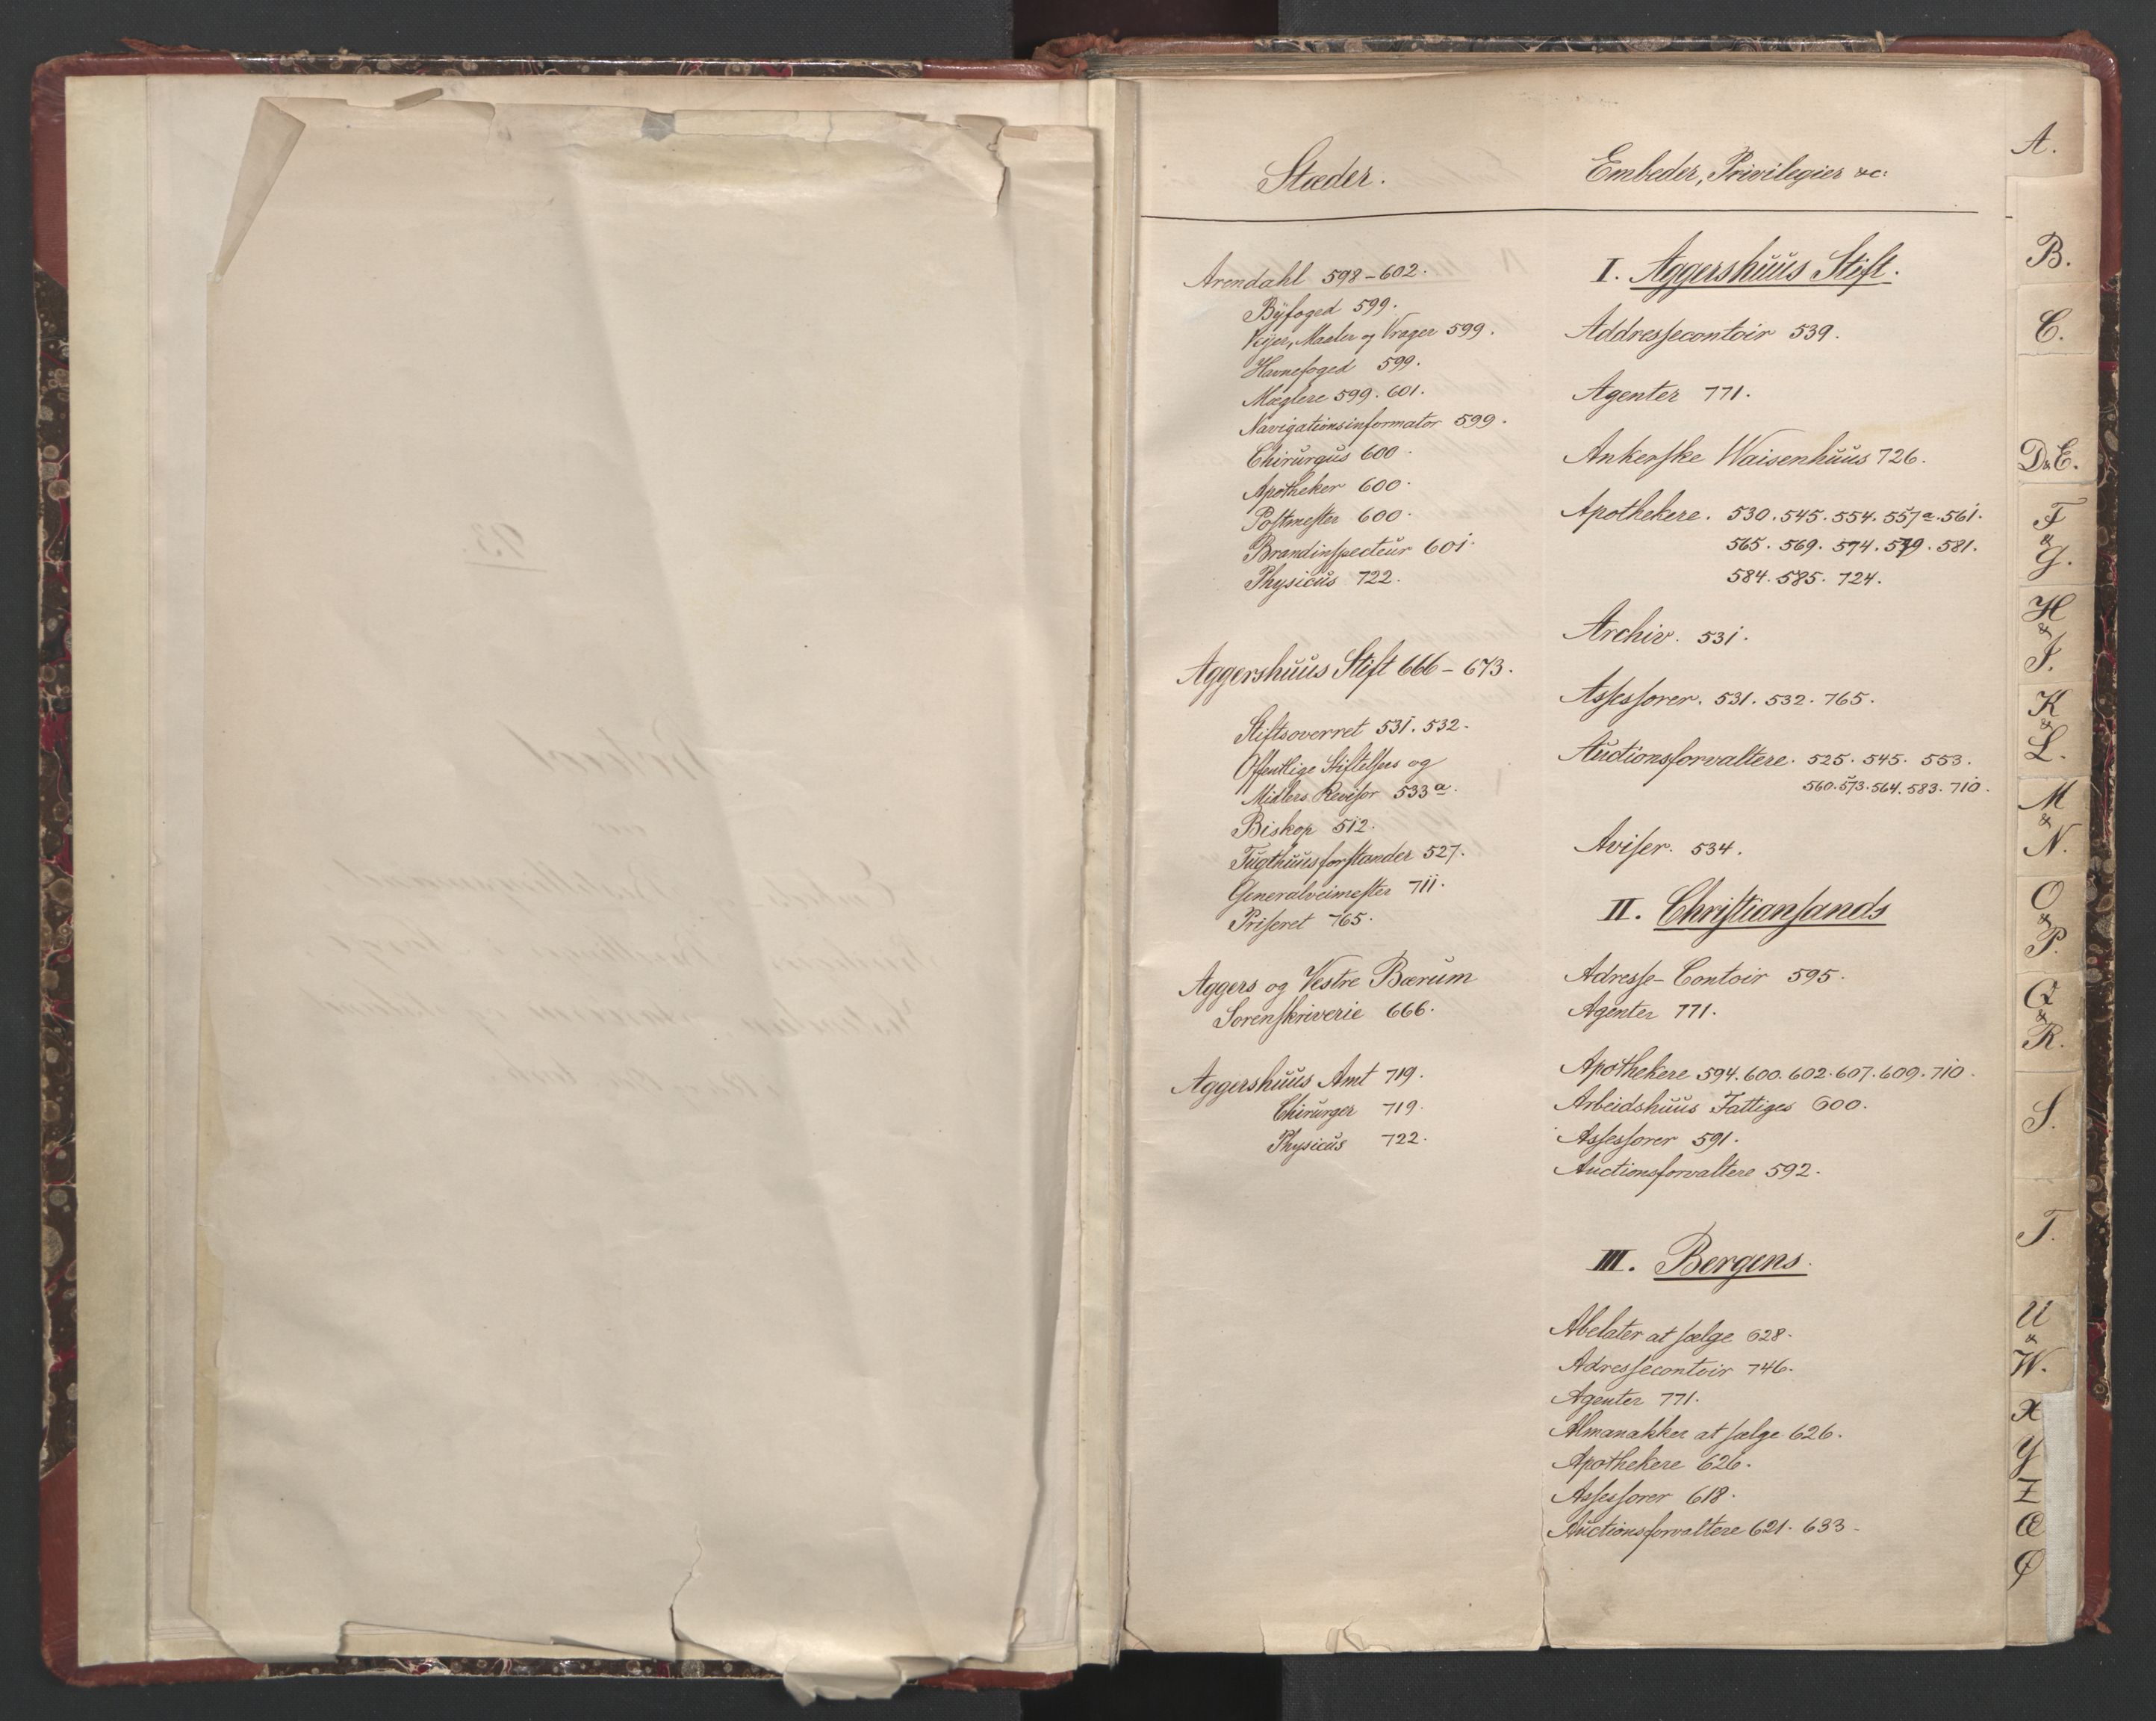 Stæder.
Arendahl 598-602.
Byfoged 599.
Veier, Maaler og Vrager 599.
Havnefoged 599.
Mæglere 599. 601.
Navigationsinformator 599.
Chirurgus 600.
Apotheker 600.
Postmester 600.
Brandinspecteur 601.
Physicus 722.
Aggershuus Stift 666-673.
Stiftsoverret 531. 532.
Offentlige Stiftelsers og
Midlers Revisor 533a.
Biskop 512.
Tugthuusforstander 527.
Generalveimester 711.
Priseret 765.
Aggers og Vestre Bærum
Sorenskriverie 666.
Aggershuus Amt 719.
Chirurger 719.
Physicus 722.
Embeder, Privilegier &c:
I. Aggershuus Stift.
Addressecontoir 539.
Agenter 771.
Ankerske Waisenhuus 726.
Apothekere. 530. 545. 554. 557a. 561.
565. 569. 574. 579. 581.
584. 585. 724.
Archiv. 531.
Assessorer. 531. 532. 765.
Auctionsforvaltere. 525. 545. 553.
560. 573. 564. 583. 710.
Aviser. 534.
II. Christiansands
Adresse-Contoir 595.
Agenter 771.
Apothekere 594. 600. 602. 607. 609. 710.
Arbeidshuus Fattiges 600.
Assessorer 591.
Auctionsforvaltere 592.
III. Bergens.
Abelater at sælge 628.
Adressecontoir 746.
Agenter 771.
Almanakker at sælge 626.
Apothekere 626.
Assessorer 618.
Auctionsforvaltere 621. 633.
A.
B.
C.
D&E.
F
&
G.
H
&
I.
K
&
L.
M
&
N.
O
&
P.
Q
&
R.
S.
T.
U
&
W.
X
Y
Z
Æ
Ø